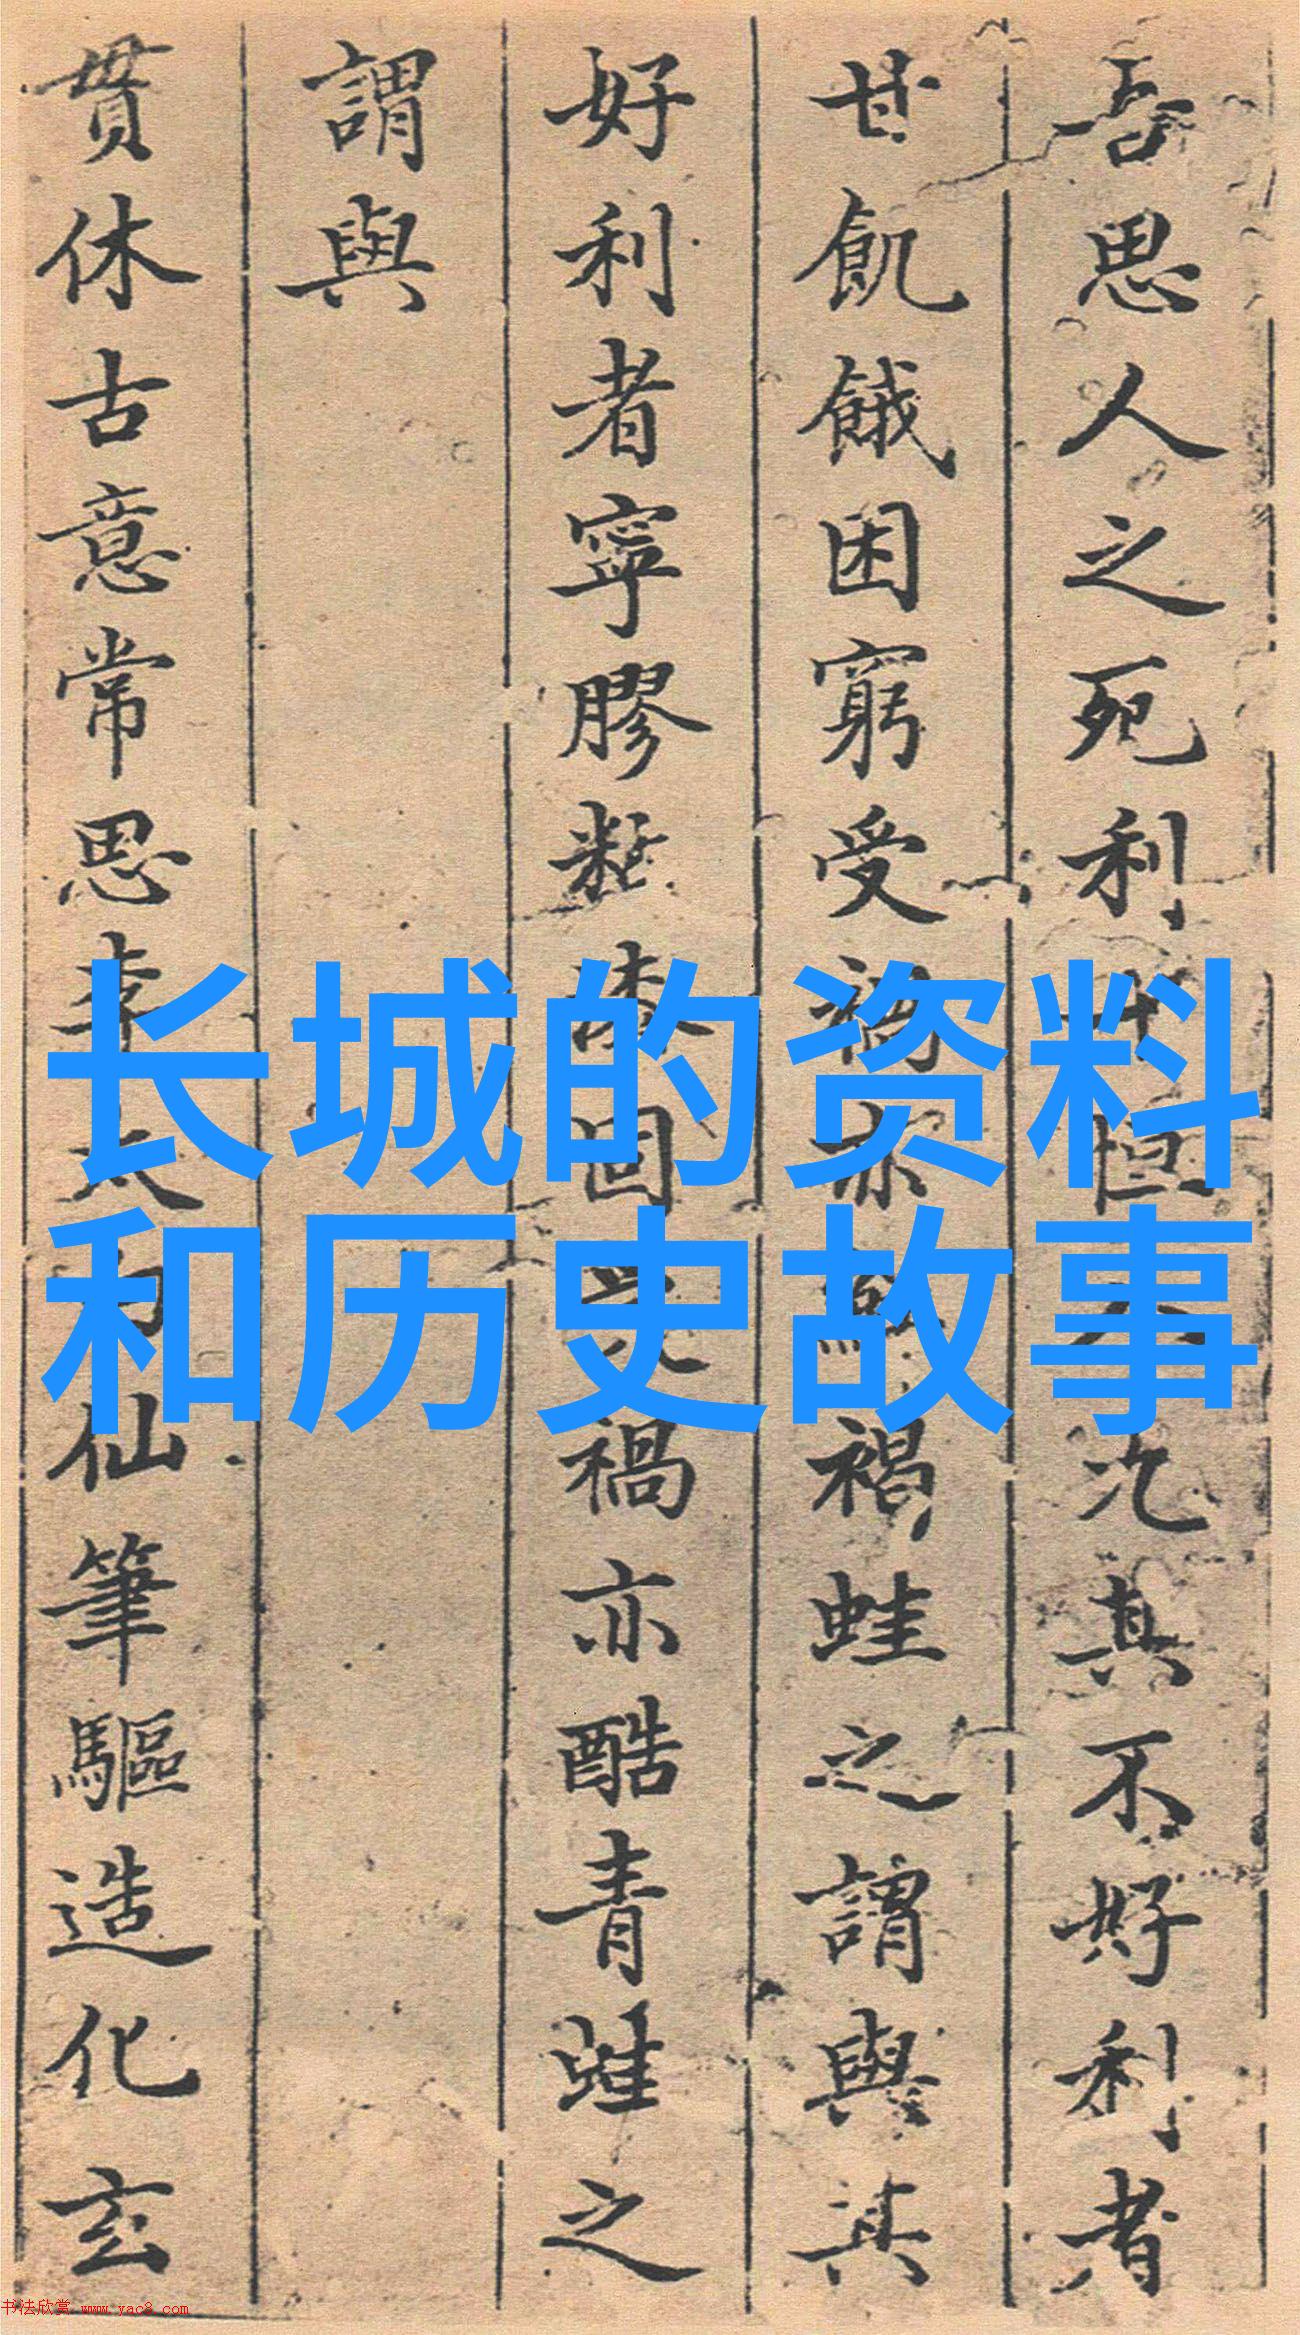 长城的资料
和历史故事
吾思人之死利
其不好利者
甘飢餓困窮受
褐蛙之謂與其
好利者寧膠
禍亦酷青蛙之
謂與
貫休古意常思李太白仙筆驅造化玄
书法欣赏 www.yac8.com